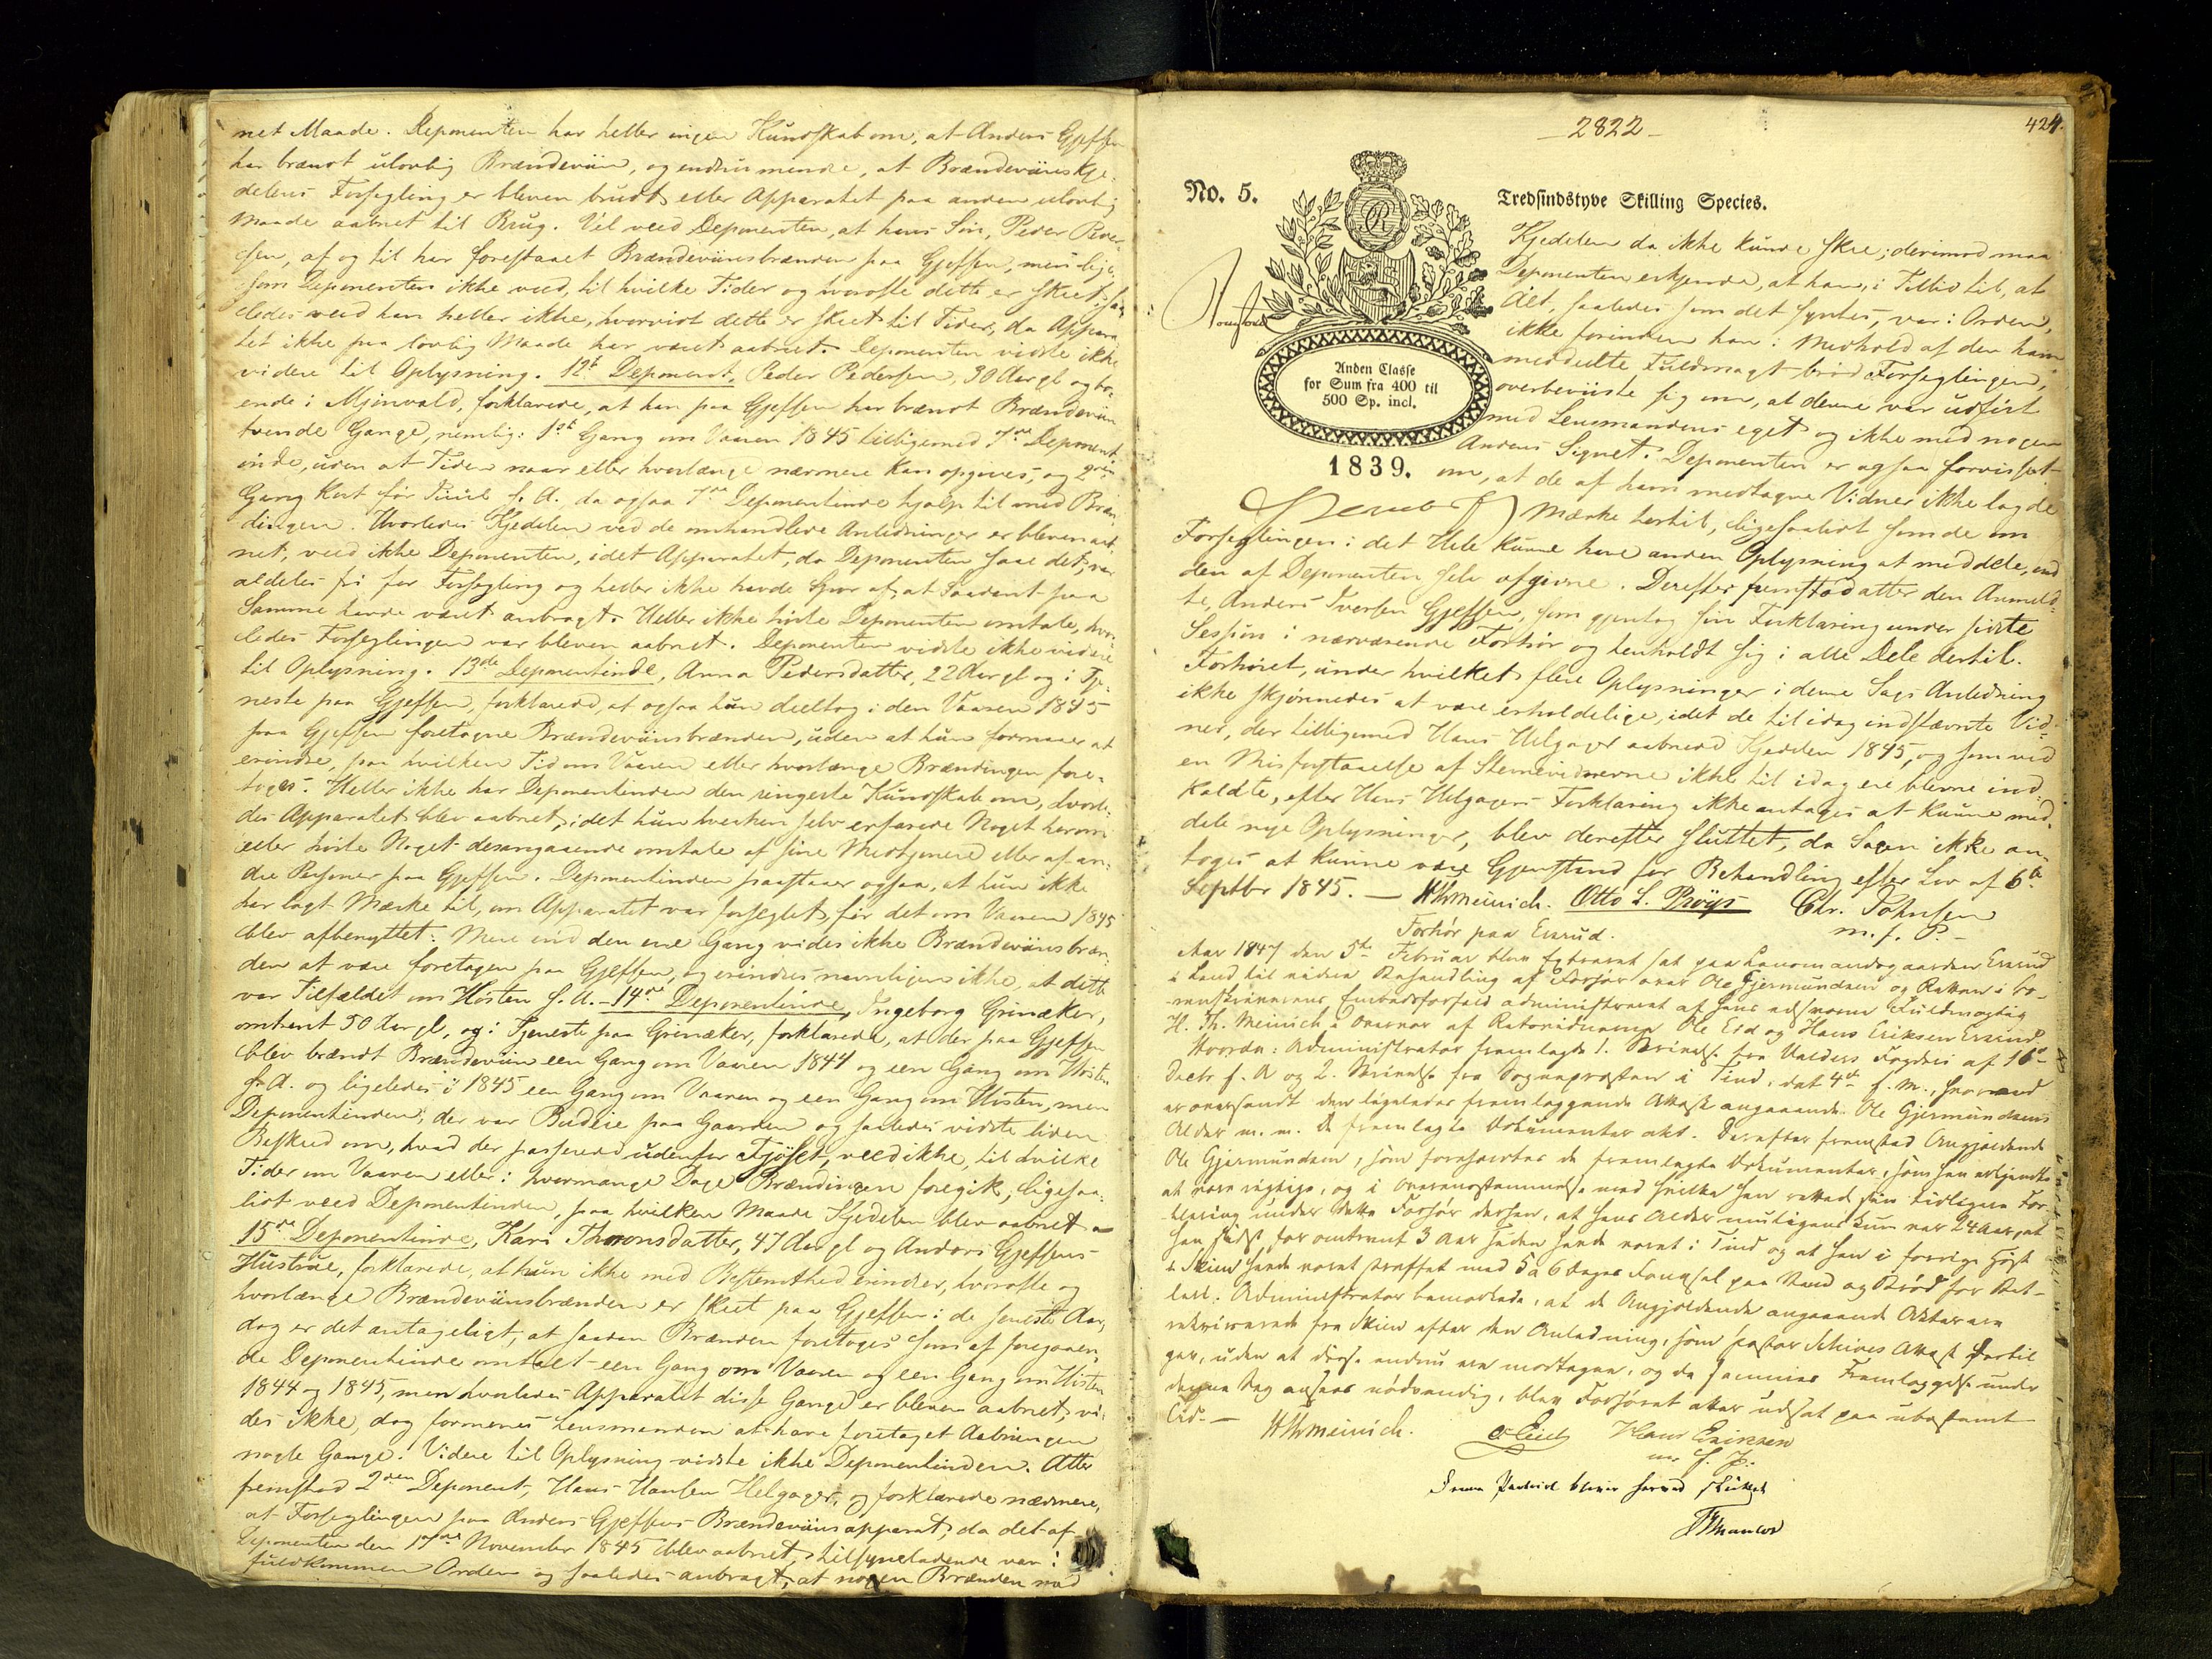 net Maade. Deponenten har heller ingen Kundskab om, at Anders Gjefsen
har brændt ulovlig Brændeviin, og endnu mindre, at Brændeviinskje-
delens Forsegling er bleven brudt eller Apparatet paa anden ulovlig
Maade aabnet til Brug. Vel veed Deponenten, at hans Søn, Peder Peder-
sen, af og til har forestaaet Brændeviinsbrænden paa Gjefsen, men lige-
som Deponenten ikke veed, til hvilke Tider og hvorofte dette er skeet, saa-
ledes veed han heller ikke, hvorvidt dette er skeet til Tider, da Appara-
tet ikke paa lovlig Maade har været aabnet. Deponenten vidste ikke
videre til Oplysning. 12te Deponent, Peder Pedersen, 30 Aar gl og bo-
ende i Mjinvald, forklarede, at han paa Gjefsen har brændt Brændeviin
tvende Gange, nemlig: 1ste Gang om Vaaren 1845 tilligemed 7de Deponent-
inde, uden at Tiden naar eller hvorlænge nærmere kan opgives, og 2den
Gang kort før Juul s. A. da ogsaa 7de Deponentinde hjalp til med Bræn-
dingen. Hvorledes Kjedelen ved de omhandlede Anledninger er bleven aab-
net, veed ikke Deponenten, idet Apparatet, da Deponenten saae det, var
aldeles fri for Forsegling og heller ikke havde Spor af, at Saadant paa
Samme havde været anbragt. Heller ikke hørte Deponenten omtale, hvor-
ledes Forseglingen var bleven aabnet. Deponenten vidste ikke videre
til Oplysning. 13de Deponentinde, Anna Pedersdatter, 22 Aar gl og i Tje-
neste paa Gjefsen, forklarede, at ogsaa hun deeltog i den Vaaren 1845
paa Gjefsen foretagne Brændeviinsbrænden, uden at hun formaaer at
erindre, paa hvilken Tid om Vaaren eller hvorlænge Brændingen fore-
toges. Heller ikke har Deponentinden den ringeste Kundskab om, hvorle-
des Apparatet blev aabnet, idet hun hverken selv erfarede Noget herom
eller hørte Noget desangaaende omtale af sine Medtjenere eller af an-
dre Personer paa Gjefsen. Deponentinden paastaaer ogsaa, at hun ikke
har lagt Mærke til, om Apparatet var forseglet, før det om Vaaren 1845
blev afbenyttet. Mere end den ene Gang vides ikke Brændeviinsbræn-
den at være foretagen paa Gjefsen, og erindres navnligen ikke, at dette
var Tilfældet om Høsten s. A. – 14de Deponentinde, Ingeborg Grinaker,
omtrent 50 Aar gl, og i Tjeneste paa Grinaker, forklarede, at der paa Gjefsen
blev brændt Brændeviin een Gang om Vaaren 1844 og een Gang om Høsten
s. A. og ligeledes i 1845 een Gang om Vaaren og een Gang om Høsten, men
Deponentinden, der var Budeie paa Gaarden og saaledes vidste liden
Besked om, hvad der passerede udenfor Fjøset, veed ikke, til hvilke
Tider om Vaaren eller i hvormange Dage Brændingen foregik, ligesaa-
lidt veed Deponentinden, paa hvilken Maade Kjedelen blev aabnet –
15de Deponentinde, Kari Thoronsdatter, 47 Aar gl og Anders Gjefsens
Hustrue, forklarede, at hun ikke med Bestemthed erindrer, hvorofte og
hvorlænge Brændeviinsbrænden er skeet paa Gjefsen i de seneste Aar,
dog er det antageligt, at saadan Brænden foretoges som af foregaaen-
de Deponentinde omtalt een Gang om Vaaren og een Gang om Høsten
1844 og 1845, men hvorledes Apparatet disse Gange er bleven aabnet, vi-
des ikke, dog formenes Lensmanden at have foretaget Aabningen
nogle Gange. Videre til Oplysning vidste ikke Deponentinden. Atter
fremstod 2den Deponent, Hans Hansen Helgager, og forklarede nærmere,
at Forseglingen paa Anders Gjefsens Brændeviinsapparat, da det af
Deponenten den 17de November 1845 blev aabnet, tilsyneladende var i
fuldkommen Orden og saaledes anbragt, at nogen Brænden med
– 2822 –
424.
No. 5.
Tredsindstyve Skilling Species.
Anden Classe
for Sum fra 400 til
500 Sp. incl.
1839.
Kjedelen da ikke kunde skee; derimod maa
Deponenten erkjende, at han, i Tillid til, at
Alt, saaledes som det syntes, var i Orden,
ikke forinden han i Medhold af den ham
meddeelte Fuldmagt brød Forseglingen,
overbeviiste sig om, at denne var udført
med Lensmandens eget og ikke med nogen
Andens Signet. Deponenten er ogsaa forvisset
om, at de af ham medtagne Vidner ikke lagde
Mærke hertil, ligesaalidt som de om
Forseglingen i det Hele kunne have anden Oplysning at meddele, end
den af Deponenten selv afgivne. Derefter fremstod atter den Anmeld-
te, Anders Iversen Gjefsen, som gjentog sin Forklaring under sidste
Session i nærværende Forhør og henholdt sig i alle Dele dertil.
Forhøret, under hvilket flere Oplysninger i denne Sags Anledning
ikke skjønnedes at være erholdelige, idet de til idag indstævnte Vid-
ner, der tilligemed Hans Helgager aabnede Kjedelen 1845, og som ved
en Misforstaaelse af Stevnevidnerne ikke til idag ere blevne ind-
kaldte, efter Hans Helgagers Forklaring ikke antages at kunne med-
dele nye Oplysninger, blev derefter sluttet, da Sagen ikke an-
toges at kunne være Gjenstand for Behandling efter Lov af 6te
Septbr 1845. – HThMeinich. Otto L. Røys Chr. Johnsen
m. f. P. –
Forhør paa Eisrud.
Aar 1847 den 5te Februar blev Extraret sat paa Lensmandsgaarden Eisrud
i Land til videre Behandling af Forhør over Ole Gjermundsen og Retten i So-
renskriverens Embedsforfald administreret af hans edsvorne Fuldmægtig
H. Th. Meinich i Overvær af Retsvidnerne Ole Eid og Hans Eriksen Eisrud.
Hvorda: Administrator fremlagde 1. Skrivelse fra Valders Fogderi af 16de
Decbr f. A og 2. Skrivelse fra Sognepræsten i Tind, dat 4de f. M., hvorved
er oversendt den ligeledes fremlæggende Attest angaaende Ole Gjermundsens
Alder m. m. De fremlagte Dokumenter akt. Derefter fremstod Angjeldende
Ole Gjermundsen, som foreholdtes de fremlagte Dokumenter, som han erkjendte
at være rigtige, og i Overensstemmelse med hvilke han rettede sin tidligere For-
klaring under dette Forhør derhen, at hans Alder muligens kun var 24 Aar, at
han sidst for omtrent 3 Aar siden havde været i Tind og at han i forrige Høst
i Skien havde været straffet med 5 a 6 Dages Fængsel paa Vand og Brød for Bet-
leri. Administrator bemærkede, at de Angjeldende angaaende Akter ere
rekvirerede fra Skien efter den Anledning, som Pastor Schives Attest dertil
gav, uden at disse endnu ere modtagne, og da sammes Fremlæggelse under
denne Sag ansees nødvendig, blev Forhøret atter udsat paa ubestemt
Tid. – HThMeinich. O Eid Hans Eriksen
m. f. P.